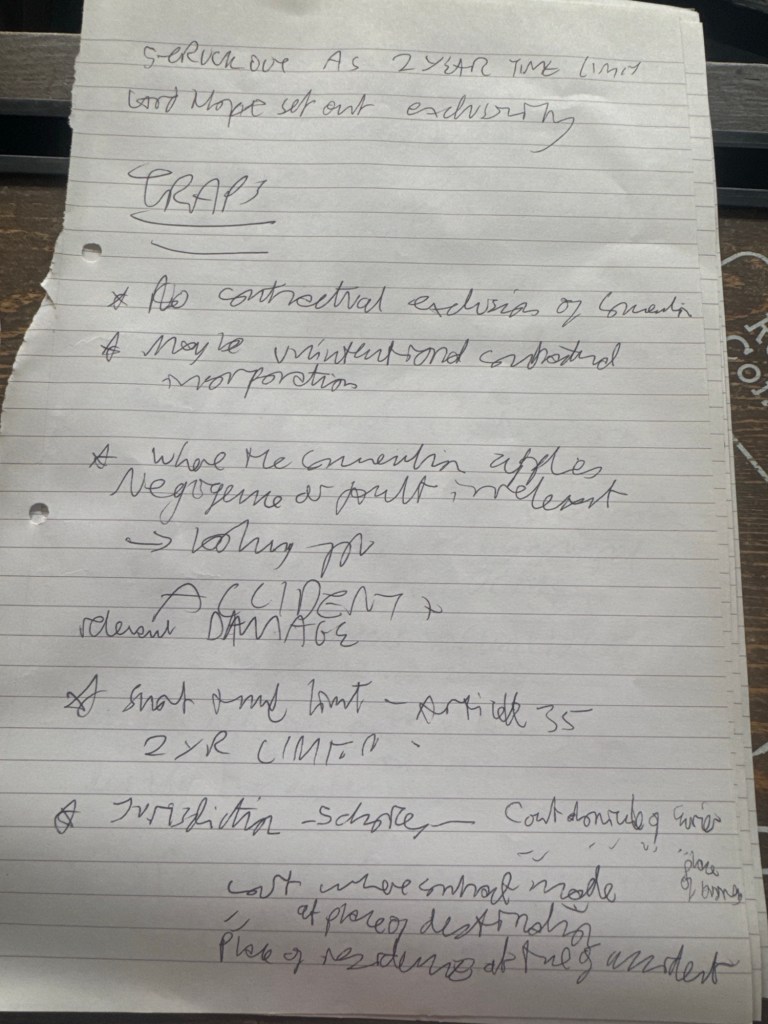 STRUCK OUT AS 2 YEAR TIME LIMIT
Lord Hope set out exclusivity
TRAPS
* No contractual exclusion of Convention
* Maybe unintentional contractual
incorporation
* Where the Convention applies
Negligence or fault irrelevant
→ looking for
ACCIDENT +
relevant DAMAGE
* Short time limit - Article 35
2 YR LIMIT
* Jurisdiction - 5 choices - Court domicile of carrier
" " " " place
of business
court where contract made
" at place of destination
Place of residence at time of accident